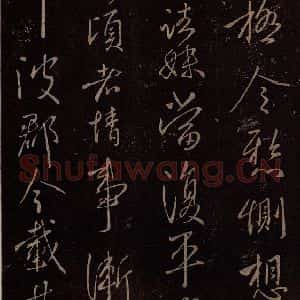 極令惻想
諸妹當復平
頃者情事漸
波郡今載
Shufawang.CN